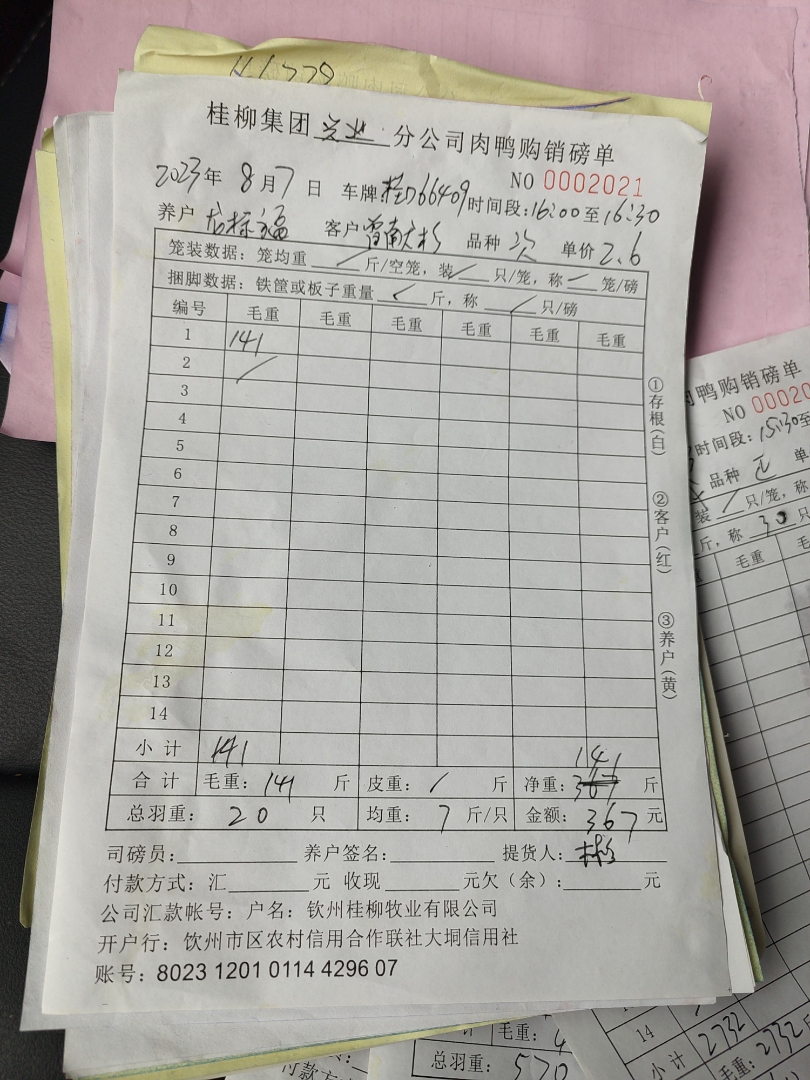 桂柳集团 兴业 分公司肉鸭购销磅单
NO 0002021
2023年 8月7日 车牌:桂D66409 时间段:16:00至16:30
养户 客户 曾南彬 品种 次 单价 2.6
笼装数据:笼均重 / 斤/空笼,装 / 只/笼,称 / 笼/磅
捆脚数据:铁筐或板子重量 / 斤,称 / 只/磅
编号 毛重 毛重 毛重 毛重 毛重 毛重
1 141
2 /
3
4
5
6
7
8
9
10
11
12
13
14
小计 141
141
合计 毛重:141 斤 皮重:/ 斤 净重:367 斤
总羽重:20 只 均重:7 斤/只 金额:367 元
司磅员: 养户签名: 提货人:彬
付款方式:汇 元 收现 元欠(余): 元
公司汇款帐号:户名:钦州桂柳牧业有限公司
开户行:饮州市区农村信用合作联社大垌信用社
账号:8023 1201 0114 4296 07
①存根(白)
②客户(红)
③养户(黄)
肉鸭购销磅单
NO 00020
时间段:15:30至
品种 正 单
装 / 只/笼,称
斤,称 30 只
毛重
14
小计 2732
毛重:2732
毛重:4
总羽重:570
付款方式: